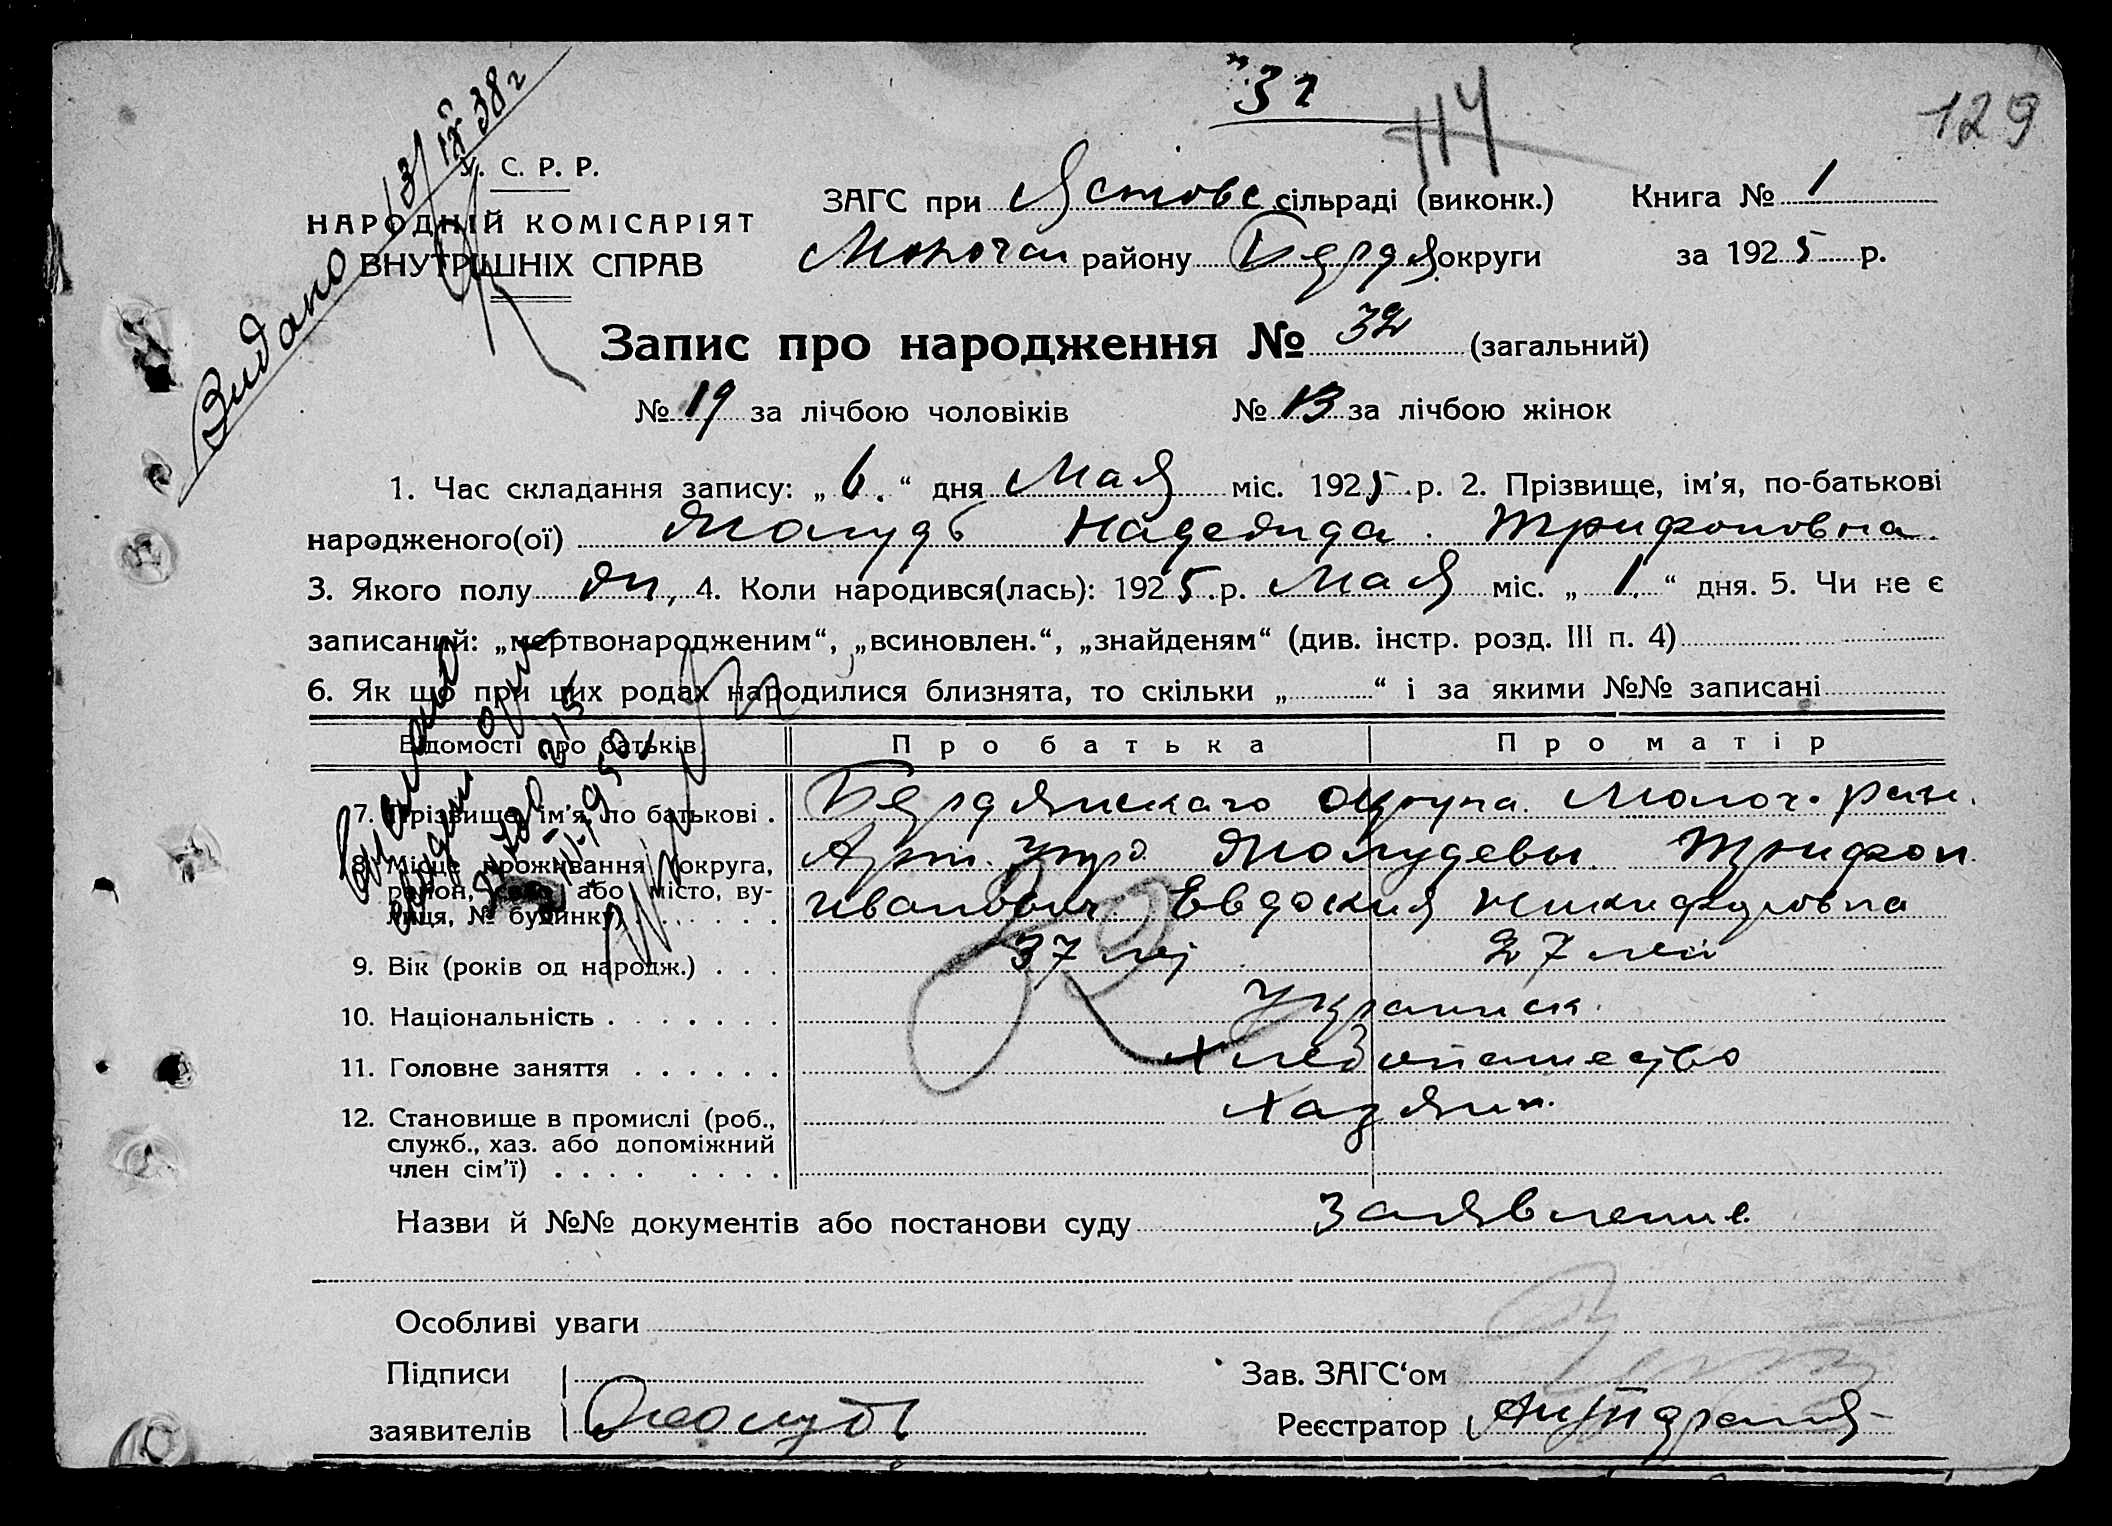 31
114
129
Видано 13/IX 38 г
У. С. Р. Р.
НАРОДНІЙ КОМІСАРІЯТ
ВНУТРІШНІХ СПРАВ
ЗАГС при сільраді (виконк.)
Книга № 1
району Бердя округи
за 1925 р.
Запис про народження № 32 (загальний)
№ 19 за лічбою чоловіків
№ 13 за лічбою жінок
1. Час складання запису: „6.“ дня Мая міс. 1925.р. 2. Прізвище, ім'я, по-батькові
народженого(ої) Жолудь Надежда Трифоновна
3. Якого полу ж, 4. Коли народився(лась): 1925.р. Мая міс. „1.“ дня. 5. Чи не є
записаний: „мертвонародженим“, „всиновлен.“, „знайденям“ (див. інстр. розд. III п. 4)
6. Як що при цих родах народилися близнята, то скільки „ “ і за якими №№ записані
Відомості про батьків
Про батька
Про матір
7. Прізвище, ім'я, по батькові . Бердянскаго округа. Молоч. ран.
8. Місце проживання (округа, район, село або місто, вулиця, № будинку) Жолудевы Трифон
Иванович Евдокия Никифоровна
9. Вік (років од народж.) . . . 37 лет 27 лет
10. Національність . . . . . . . Украинск.
11. Головне заняття . . . . . . Хлебопашество
12. Становище в промислі (роб., Хазяин.
служб., хаз. або допоміжний
член сім'ї) . . . . . . . .
Назви й №№ документів або постанови суду Заявление
Особливі уваги
Підписи
заявителів Жолудь
Зав. ЗАГС‘ом
Реєстратор